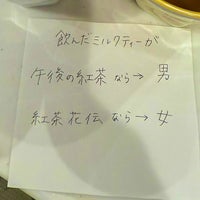 飲んだミルクティーが
午後の紅茶なら→ 男
紅茶花伝なら→ 女